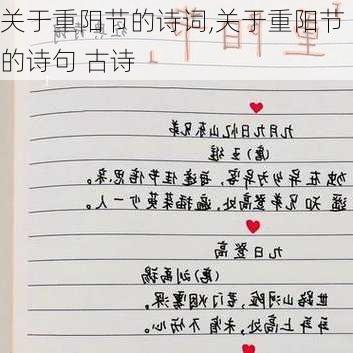 关于重阳节的诗词,关于重阳节
的诗句 古诗
九月九日忆山东兄弟
(唐)王维
独在异乡为异客,每逢佳节倍思亲。
遥知兄弟登高处,遍插茱萸少一人。
九日登高
(唐)刘禹锡
世路山河险,君门烟雾深。
年年上高处,未省不伤心。